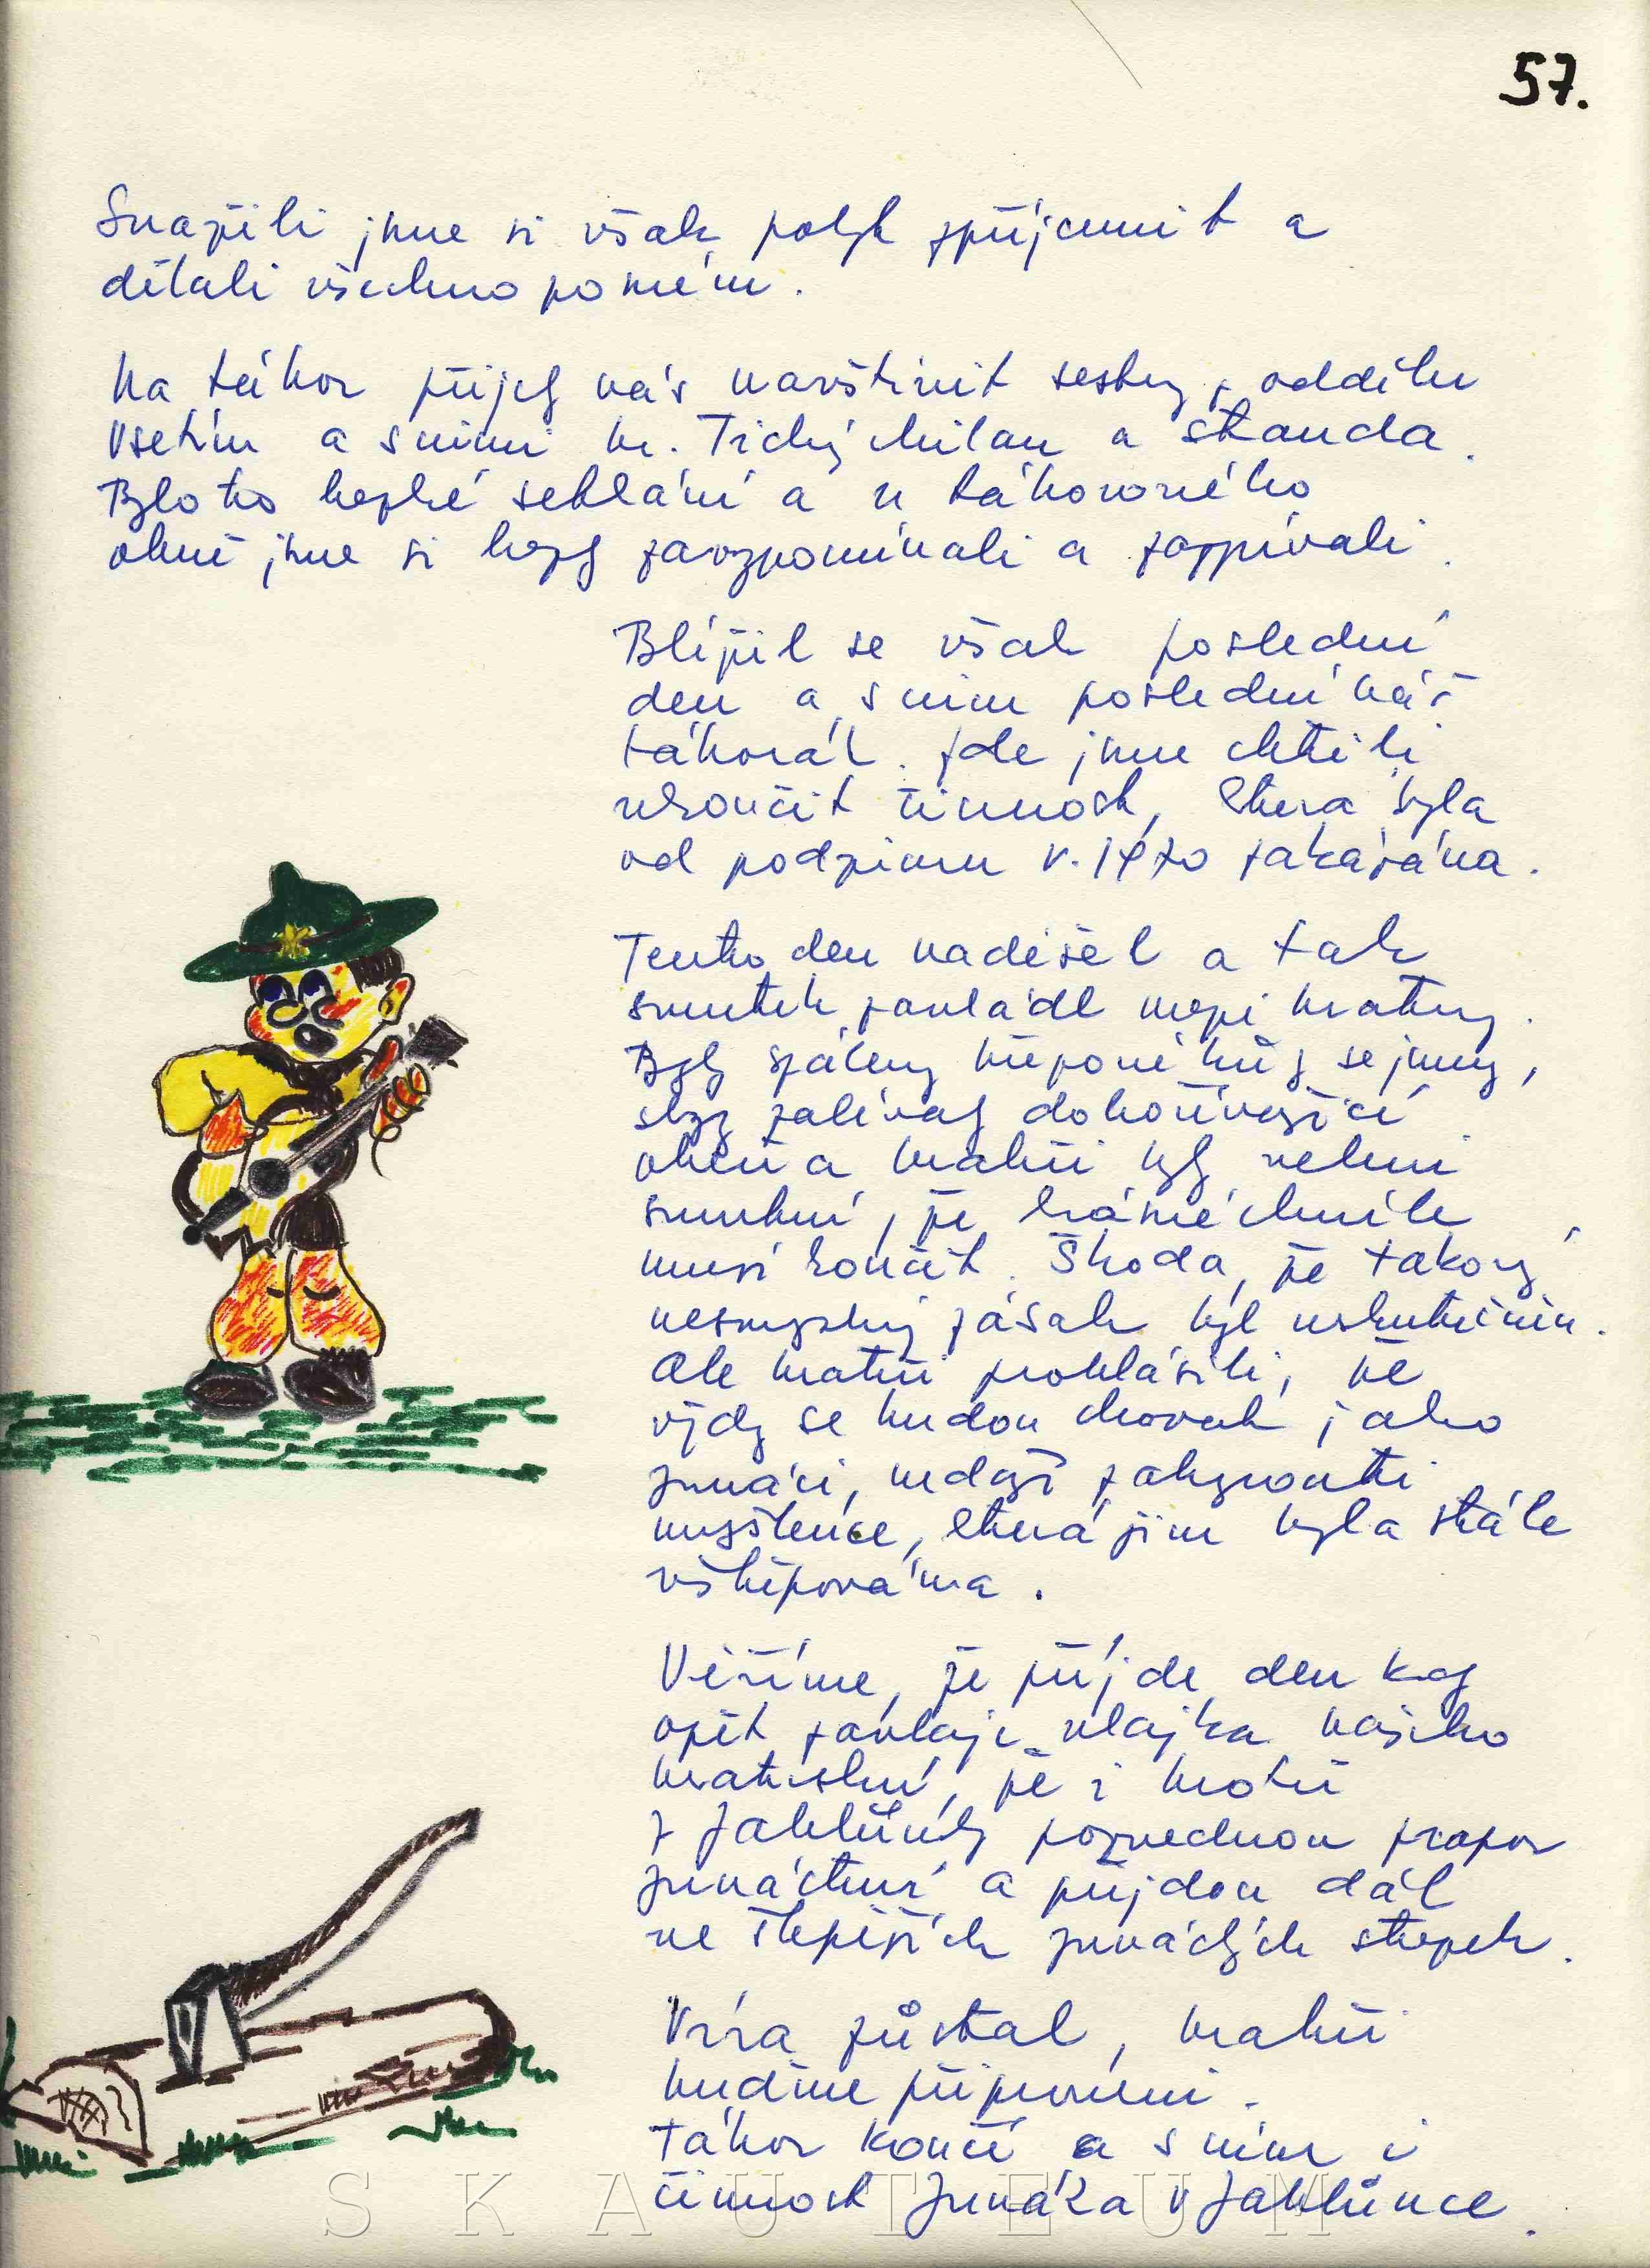 57.
Snažili jsme si však pobyt zpříjemnit a
dělali všechno poměrn.
Na tábor přijely nás navštívit sestry z oddílu
Vsetín a s nimi br. Tichý Milan a Standa.
Bylo to hezké setkání a u táborového
ohně jsme si hezky zavzpomínali a zazpívali.
Blížil se však poslední
den a s ním poslední náš
táborák. Zde jsme chtěli
ukončit činnost, která byla
od podzimu r. 1970 zakázána.
Tento den nadešel a tak
smutek zavládl mezi bratry.
Byly spáleny sejmuty,
slzy zalívaly dohořívající
oheň a bratři byly velmi
smutní, že krásné chvíle
musí končit. Škoda, že takový
nesmyslný zásah byl uskutečněn.
Ale bratři prohlásili, že
vždy se budou chovat jako
junáci, nedají zahynouti
myšlence, která jim byla stále
vštěpována.
Věříme, že přijde den kdy
opět zavlaje vlajka našeho
bratrství, že i bratři
z Jablůnky pozvednou prapor
junáctví a půjdou dál
ve šlépějích junáckých stopek.
Víra zůstal, bratři
buďme připraveni.
Tábor končí a s ním i
činnost Junáka v Jablůnce.
SKAUTEUM